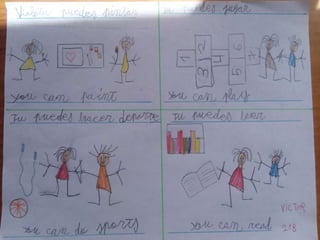 puedes pintar
puedes jugar
1 3 2 4 5 6
You can paint
You can play
Tu puedes hacer deporte
Tu puedes leer
VICTOR
You can do sports
You can read